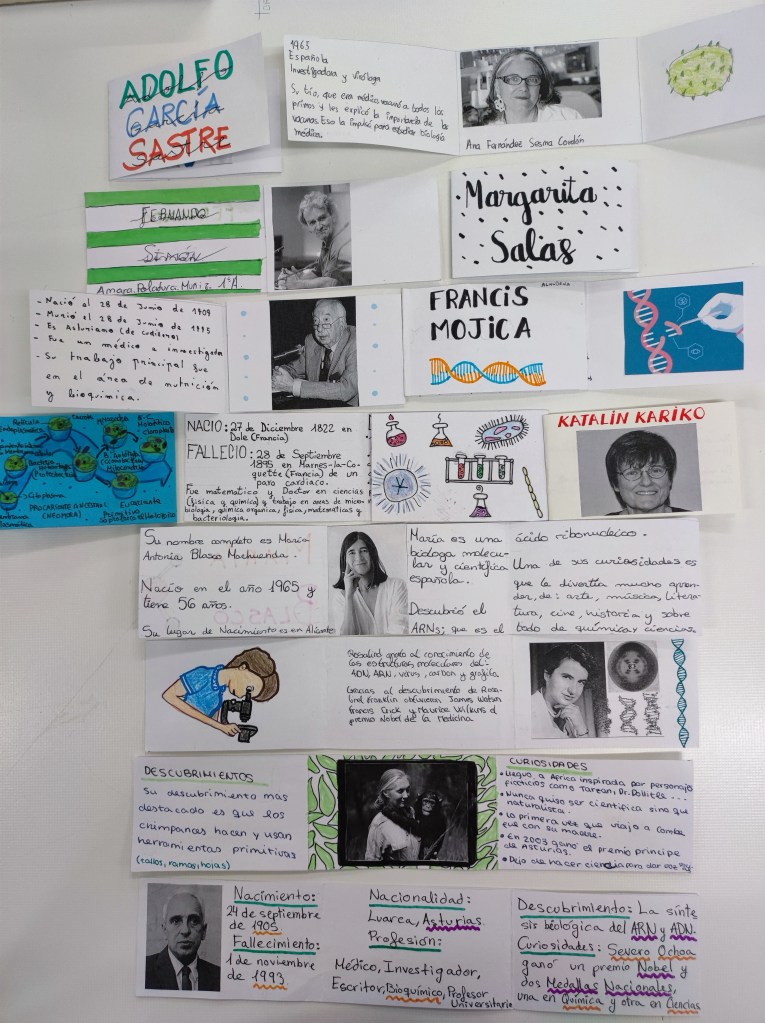 ADOLFO
GARCÍA
SASTRE
1963
Española
Investigadora y viróloga
Su tío, que era médico vacunó a todos los
primos y les explicó la importancia de las
vacunas. Eso la impulsó para estudiar biología
médica.
Ana Fernández Sesma Cordón
FERNANDO
SIMÓN
Amara Poladura Muniz 1ºA
Margarita
Salas
- Nació el 28 de Junio de 1909
- Murió el 28 de Junio de 1995
- Es Asturiano (de Cudillero)
- Fue un médico e investigador
- Su trabajo principal fue
en el área de nutrición
y bioquímica.
FRANCIS
MOJICA
NACIO: 27 de Diciembre 1822 en
Dole (Francia)
FALLECIO: 28 de Septiembre
1895 en Marnes-la-Co-
quette (Francia) de un
paro cardiaco.
Fue matematico y Doctor en ciencias
(fisica y quimica) y trabajo en areas de micro-
biologia, quimica organica, fisica, matematicas y
bacteriologia.
KATALIN KARIKO
Su nombre completo es María
Antonia Blasco Marhuenda.
Nacío en el año 1965 y
tiene 56 años.
Su lugar de Nacimiento es en Alicante
María es una
bióloga molecu-
lar y científica
española.
Descubrió el
ARNs; que es el
ácido ribonucleico.
Una de sus curiosidades es
que le divertía mucho apren-
der, de: arte, música, litera-
tura, cine, historia y sobre
todo de química y ciencias.
Rosalind aportó al conocimiento de
las estructuras moleculares del:
ADN, ARN, virus, carbon y grafito
Gracias al descubrimiento de Rosa-
lind Franklin obtuvieron, James Watson
Francis Crick y Maurice Wilkins el
premio Nobel de la Medicina
DESCUBRIMIENTOS
Su descubrimiento mas
destacado es que los
chimpances hacen y usan
herramientas primitivas
(tallos, ramas, hojas)
CURIOSIDADES
• Llegvo, a Africa inspirada por personajes
ficticios como Tarzan, Dr. Dolittle...
• Nunca quiso ser cientifica sino que
naturalista.
• La primera vez que viajo a Gombe
fue con su madre.
• En 2003 gano el premio principe
de Asturias.
• Dejo de hacer ciencia para dar voz
Nacimiento:
24 de septiembre
de 1905
Fallecimiento:
1 de noviembre
de 1993
Nacionalidad:
Luarca, Asturias.
Profesión:
Médico, Investigador,
Escritor, Bioquímico, Profesor
Universitario
Descubrimiento: La sínte
sis biológica del ARN y ADN.
Curiosidades: Severo Ochoa
ganó un premio Nobel y
dos Medallas Nacionales,
una en Química y otra en Ciencias